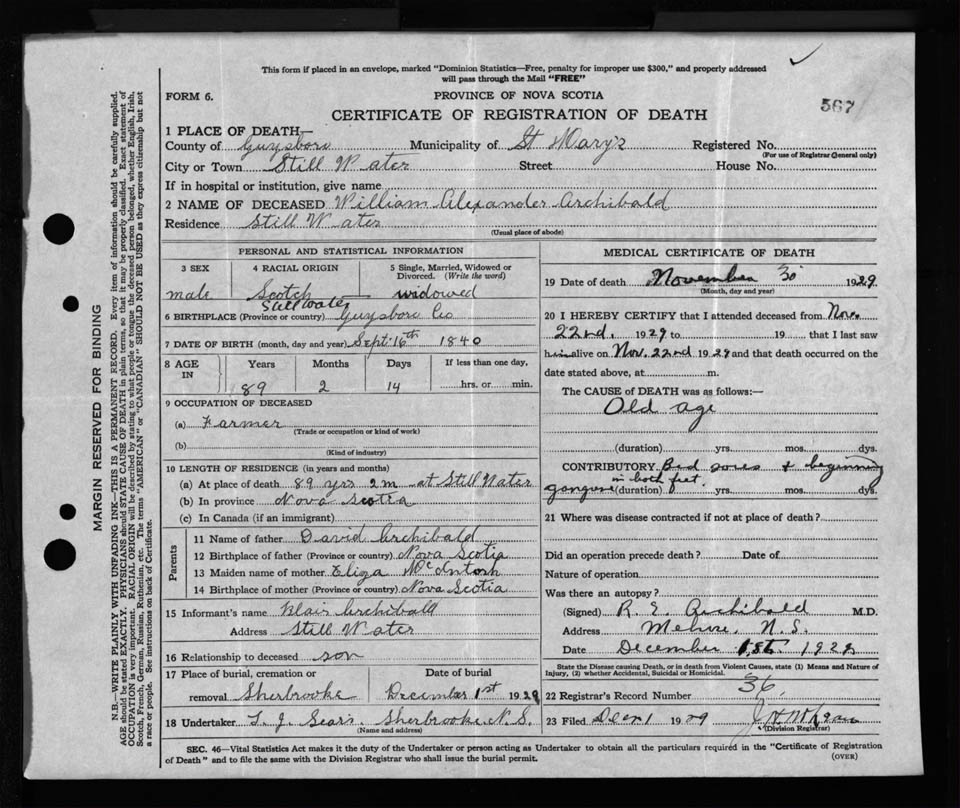 This form if placed in an envelope, marked "Dominion Statistics—Free, penalty for improper use $300," and properly addressed
will pass through the Mail "FREE"
FORM 6.
PROVINCE OF NOVA SCOTIA
567
CERTIFICATE OF REGISTRATION OF DEATH
1 PLACE OF DEATH—
County of Guysboro Municipality of St Mary's Registered No.
(For use of Registrar General only)
City or Town Still Water Street House No.
If in hospital or institution, give name
2 NAME OF DECEASED William Alexander Archibald
Residence Still Water
(Usual place of abode)
PERSONAL AND STATISTICAL INFORMATION
3 SEX
male
4 RACIAL ORIGIN
Scotch
5 Single, Married, Widowed or
Divorced. (Write the word)
widowed
Still Water
6 BIRTHPLACE (Province or country) Guysboro Co
7 DATE OF BIRTH (month, day and year) Sept. 16th 1840
8 AGE IN
Years Months Days If less than one day,
89 2 14 hrs. or min.
9 OCCUPATION OF DECEASED
(a) Farmer
(Trade or occupation or kind of work)
(b)
(Kind of industry)
10 LENGTH OF RESIDENCE (in years and months)
(a) At place of death 89 yrs 2m at Still Water
(b) In province Nova Scotia
(c) In Canada (if an immigrant)
Parents
11 Name of father David Archibald
12 Birthplace of father (Province or country) Nova Scotia
13 Maiden name of mother Eliza McIntosh
14 Birthplace of mother (Province or country) Nova Scotia
15 Informant's name Blair Archibald
Address Still Water
16 Relationship to deceased son
17 Place of burial, cremation or
removal Sherbrooke
Date of burial
December 1st 1929
18 Undertaker T. J. Sears Sherbrooke N.S.
(Name and address)
MEDICAL CERTIFICATE OF DEATH
19 Date of death November 30 1929
(Month, day and year)
20 I HEREBY CERTIFY that I attended deceased from Nov.
22nd, 1929 to 19 that I last saw
him alive on Nov. 22nd 1929 and that death occurred on the
date stated above, at m.
The CAUSE OF DEATH was as follows:
Old age
(duration) yrs. mos. dys.
CONTRIBUTORY Bed sores & beginning
in both feet.
gangrene (duration) yrs. mos. dys.
21 Where was disease contracted if not at place of death?
Did an operation precede death? Date of
Nature of operation
Was there an autopsy?
(Signed) R. E. Archibald M.D.
Address N.S.
Date December 1st. 1929
State the Disease causing Death, or in death from Violent Causes, state (1) Means and Nature of
Injury, (2) whether Accidental, Suicidal or Homicidal.
22 Registrar's Record Number 36
23 Filed Dec 1 1929
(Division Registrar)
SEC. 46—Vital Statistics Act makes it the duty of the Undertaker or person acting as Undertaker to obtain all the particulars required in the "Certificate of Registration
of Death" and to file the same with the Division Registrar who shall issue the burial permit.
(OVER)
MARGIN RESERVED FOR BINDING
N.B.—WRITE PLAINLY WITH UNFADING INK—THIS IS A PERMANENT RECORD. Every item of information should be carefully supplied.
AGE should be stated EXACTLY. PHYSICIANS should STATE CAUSE OF DEATH in plain terms, so that it may be properly classified. Exact statement of
OCCUPATION is very important. RACIAL ORIGIN will be described by stating to what people or tongue the deceased person belonged, whether English, Irish,
Scotch, French, German, Russian, Ruthenian, etc. The terms "AMERICAN" or "CANADIAN" SHOULD NOT BE USED as they express citizenship but not
a race or people. See instructions on back of Certificate.